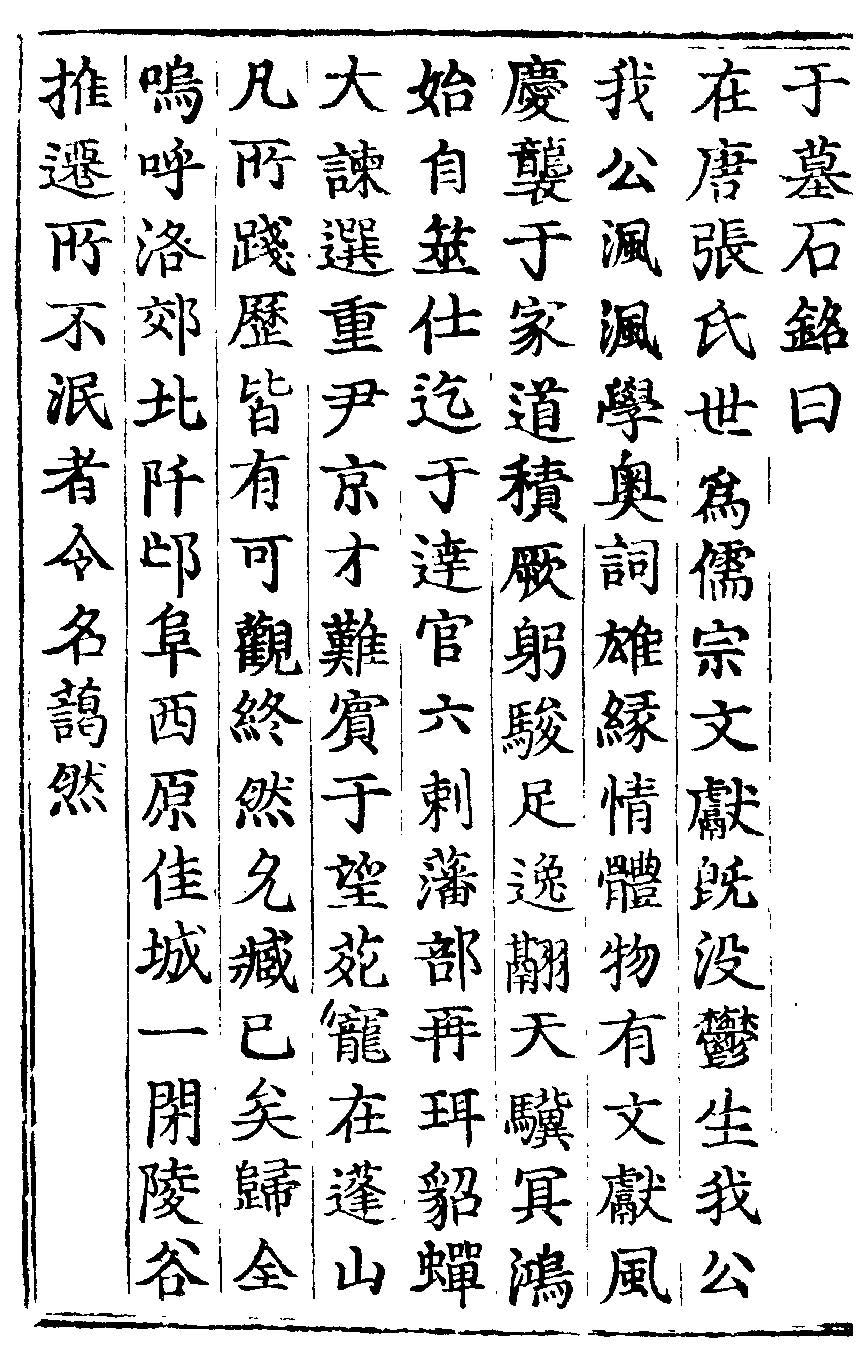 于墓石銘曰
在唐張氏世爲儒宗文獻旣没鬱生我公
我公渢渢學奥詞雄縁情體物有文獻風
慶襲于家道積厥躬駿足逸翮天驥冥鴻
始自筮仕迄于達官六刺藩部再珥貂蟬
大諫選重尹京才難賓于望苑寵在蓬山
凡所踐歷皆有可觀終然允臧已矣歸全
嗚呼洛郊北阡邙阜西原佳城一閉陵谷
推遷所不泯者令名藹然